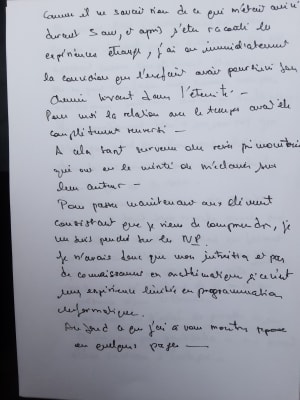 Comme il ne savait rien de ce qui m'était arrivé
durant 5 ans, et après s'être raconté les
expériences étranges, j'ai eu immédiatement
la conviction que l'enfant avait poursuivi son
chemin vivant dans l'éternité -
Pour moi la relation avec le temps avait été
complètement -
A cela sont survenu des rêves prémonitoires
qui ont eu le mérite de m'éclairer sur
leur auteur -
Pour passer maintenant aux élément
consistant que je viens de comprendre, je
me suis penché sur les NP.
Je n'avais donc que mon intuition et pas
de connaissance en mathématique, si ce n'est
une expérience limitée en programmation
informatique.
Au fond ce que j'ai à vous montrer repose
en quelques pages -